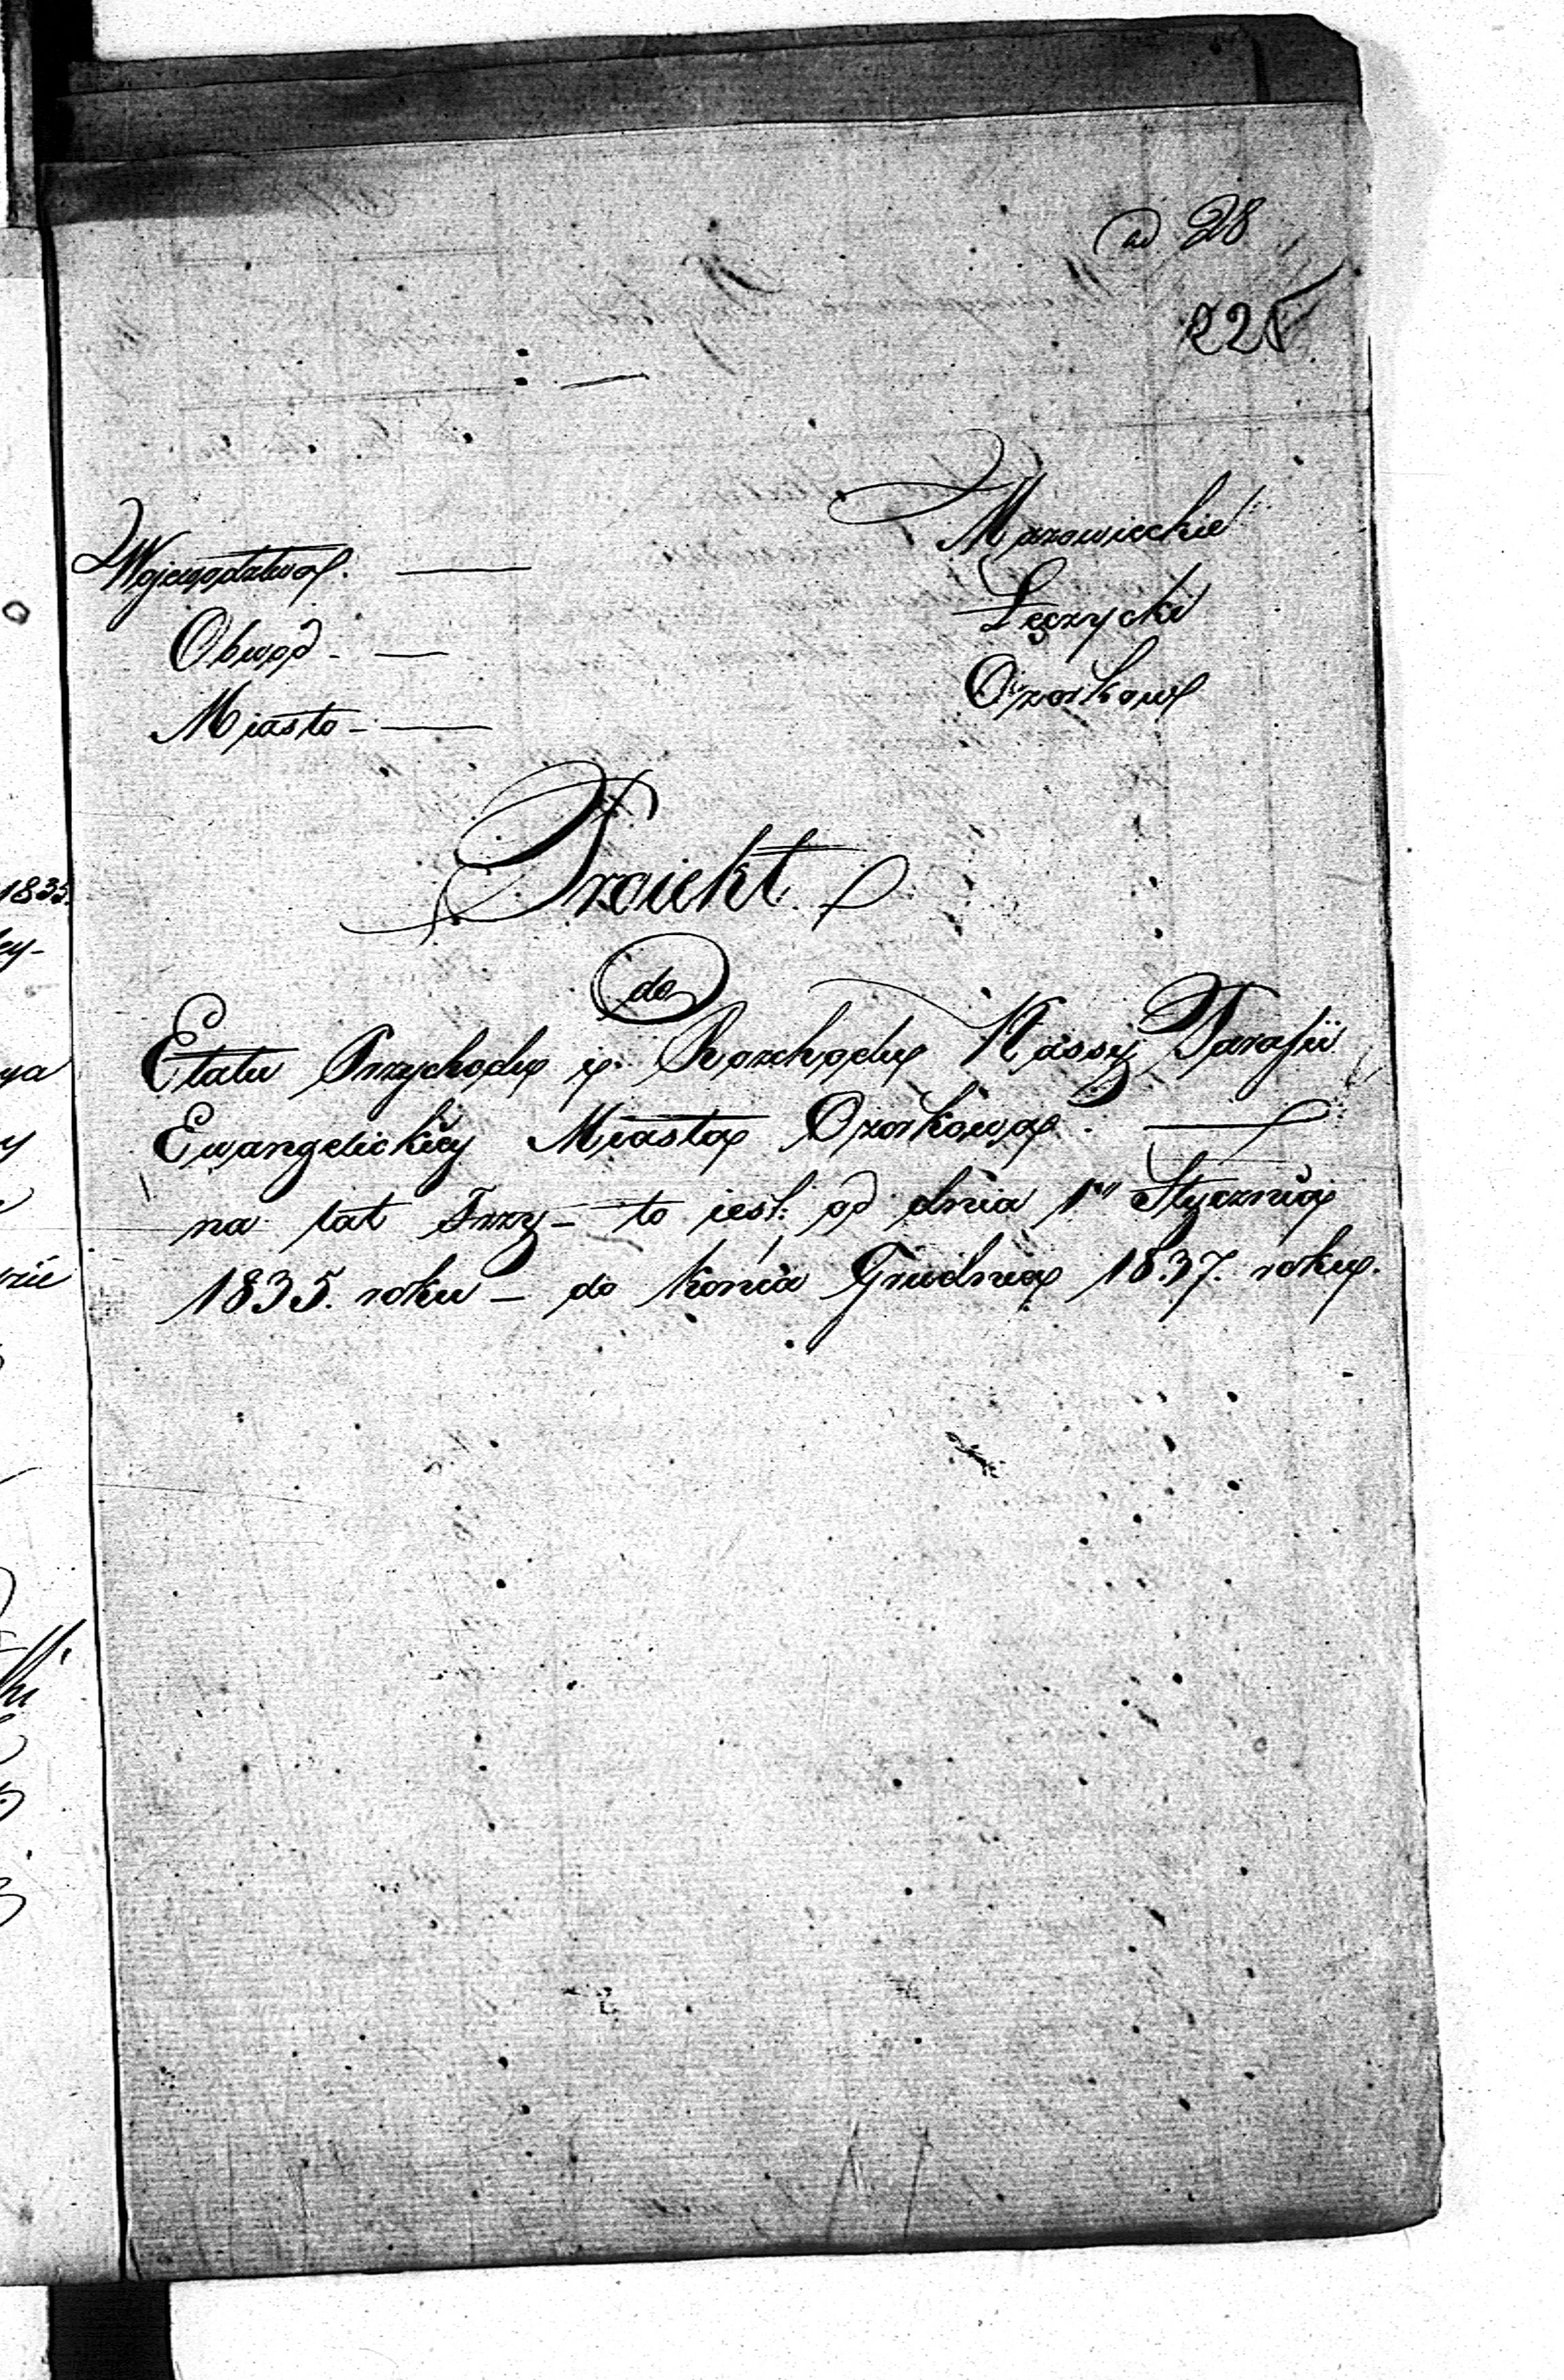 ad 28
225
Województwo. — Mazowieckie
Obwod - — Łęczycki
Miasto - — Ozorkow
Proiekt
do
Etatu Przychodu i Rozchodu Kassy Parafii
Ewangelickiey Miasta Ozorkowa. —
na lat Trzy - to iest: od dnia 1go Stycznia
1835. roku - do końca Grudnia 1837. roku.
1835.